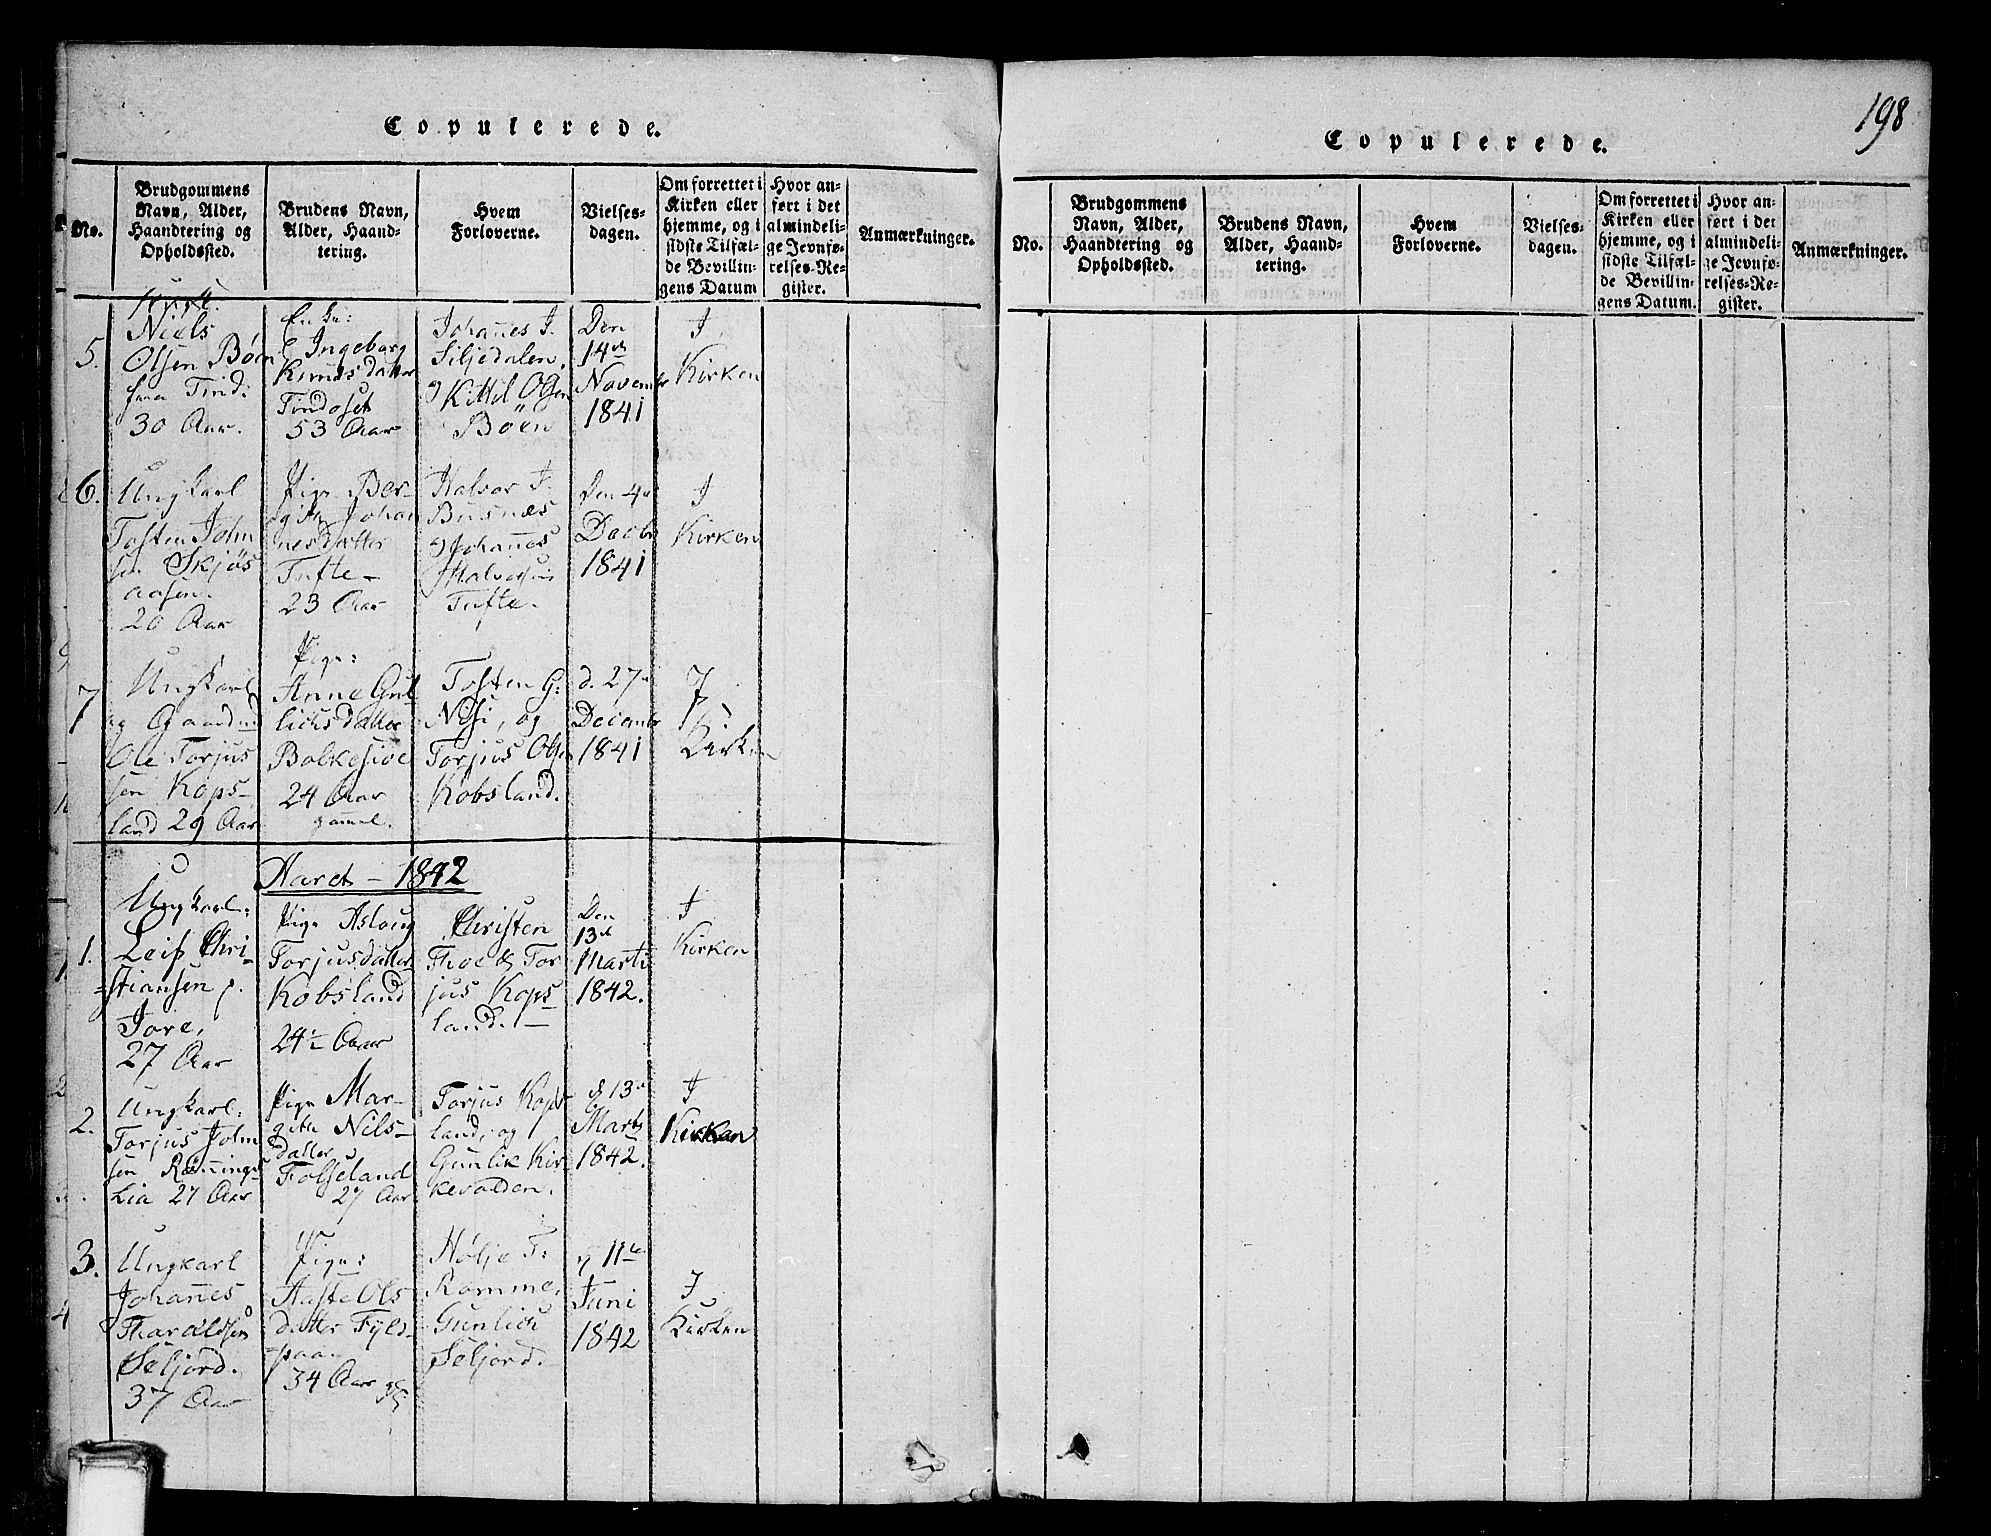 Copulerede.
No.
Brudgommens
Navn, Alder,
Haandtering og
Opholdssted.
Brudens Navn,
Alder, Haand-
tering.
Hvem
Forloverne.
Vielses-
dagen.
Om forrettet i
Kirken eller
hjemme, og i
sidste Tilfæl-
de Bevillin-
gens Datum
Hvor an-
ført i det
almindeli-
ge Jevnfø-
relses-Re-
gister.
Anmærkninger.
5.
Niels
Olsen Böen
fra Tind:
30 Aar.
Enke:
Ingeborg
Knudsdatter
Tindoset
53 Aar
Johannes J.
Siljedalen,
Kittil Olsen
Böen
Den
14de
Novembr
1841
I
Kirken
6.
Ungkarl
Tosten John
sen Skjös
aasen.
20 Aar
Pige Ber-
gith Johan
nesdatter
Tufte-
23 Aar
Halvor J.
Busnæs
Johannes
Halvorsen
Tufte.
den 4de
Decbr
1841
I
Kirken
7
Ungkarl
og Gaardmd
Ole Torjus
sen Kops-
land 29 Aar
Pige:
Anne Gul
lichsdatter
Bolkesiöe
24 Aar
gammel.
Tosten G:
Nisi, og
Torjus Olsen
Kobsland.
d. 27de
Decembr
1841
I
Kirken
Aaret - 1842
1.
Ungkarl:
Leif Chri-
=stiansen p.
Tore,
27 Aar
Pige Aslaug
Torjusdatter
Kobsland
24 Aar
Christen
Thoe & Tor
jus Kops
land. -
Den
13de
Marti
1842.
I
Kirken
2.
Ungkarl:
Torjus John
sen Rönnings
Lia 27 Aar
Pige Mar-
gith Nils-
datter
Folseland
27 Aar
Torjus Kops
land, og
Gunlik Kir
kevolden.
d 13de
Marts
1842.
I
Kirken
3.
Ungkarl
Johannes
Tharaldsen
Seljord.
37 Aar
Pige:
Aaste Ols
datter Fyls-
=paa.
34 Aar gl
Hölje T:
Romme,
Gunlich
Seljord.
d 11te
Juni
1842
I
Kirken
198
Copulerede.
No.
Brudgommens
Navn, Alder,
Haandtering og
Opholdssted.
Brudens Navn,
Alder, Haand-
tering.
Hvem
Forloverne.
Vielses-
dagen.
Om forrettet i
Kirken eller
hjemme, og i
sidste Tilfæl-
de Bevillin-
gens Datum.
Hvor an-
ført i det
almindeli-
ge Jevnfø-
relses-Re-
gister.
Anmærkninger.